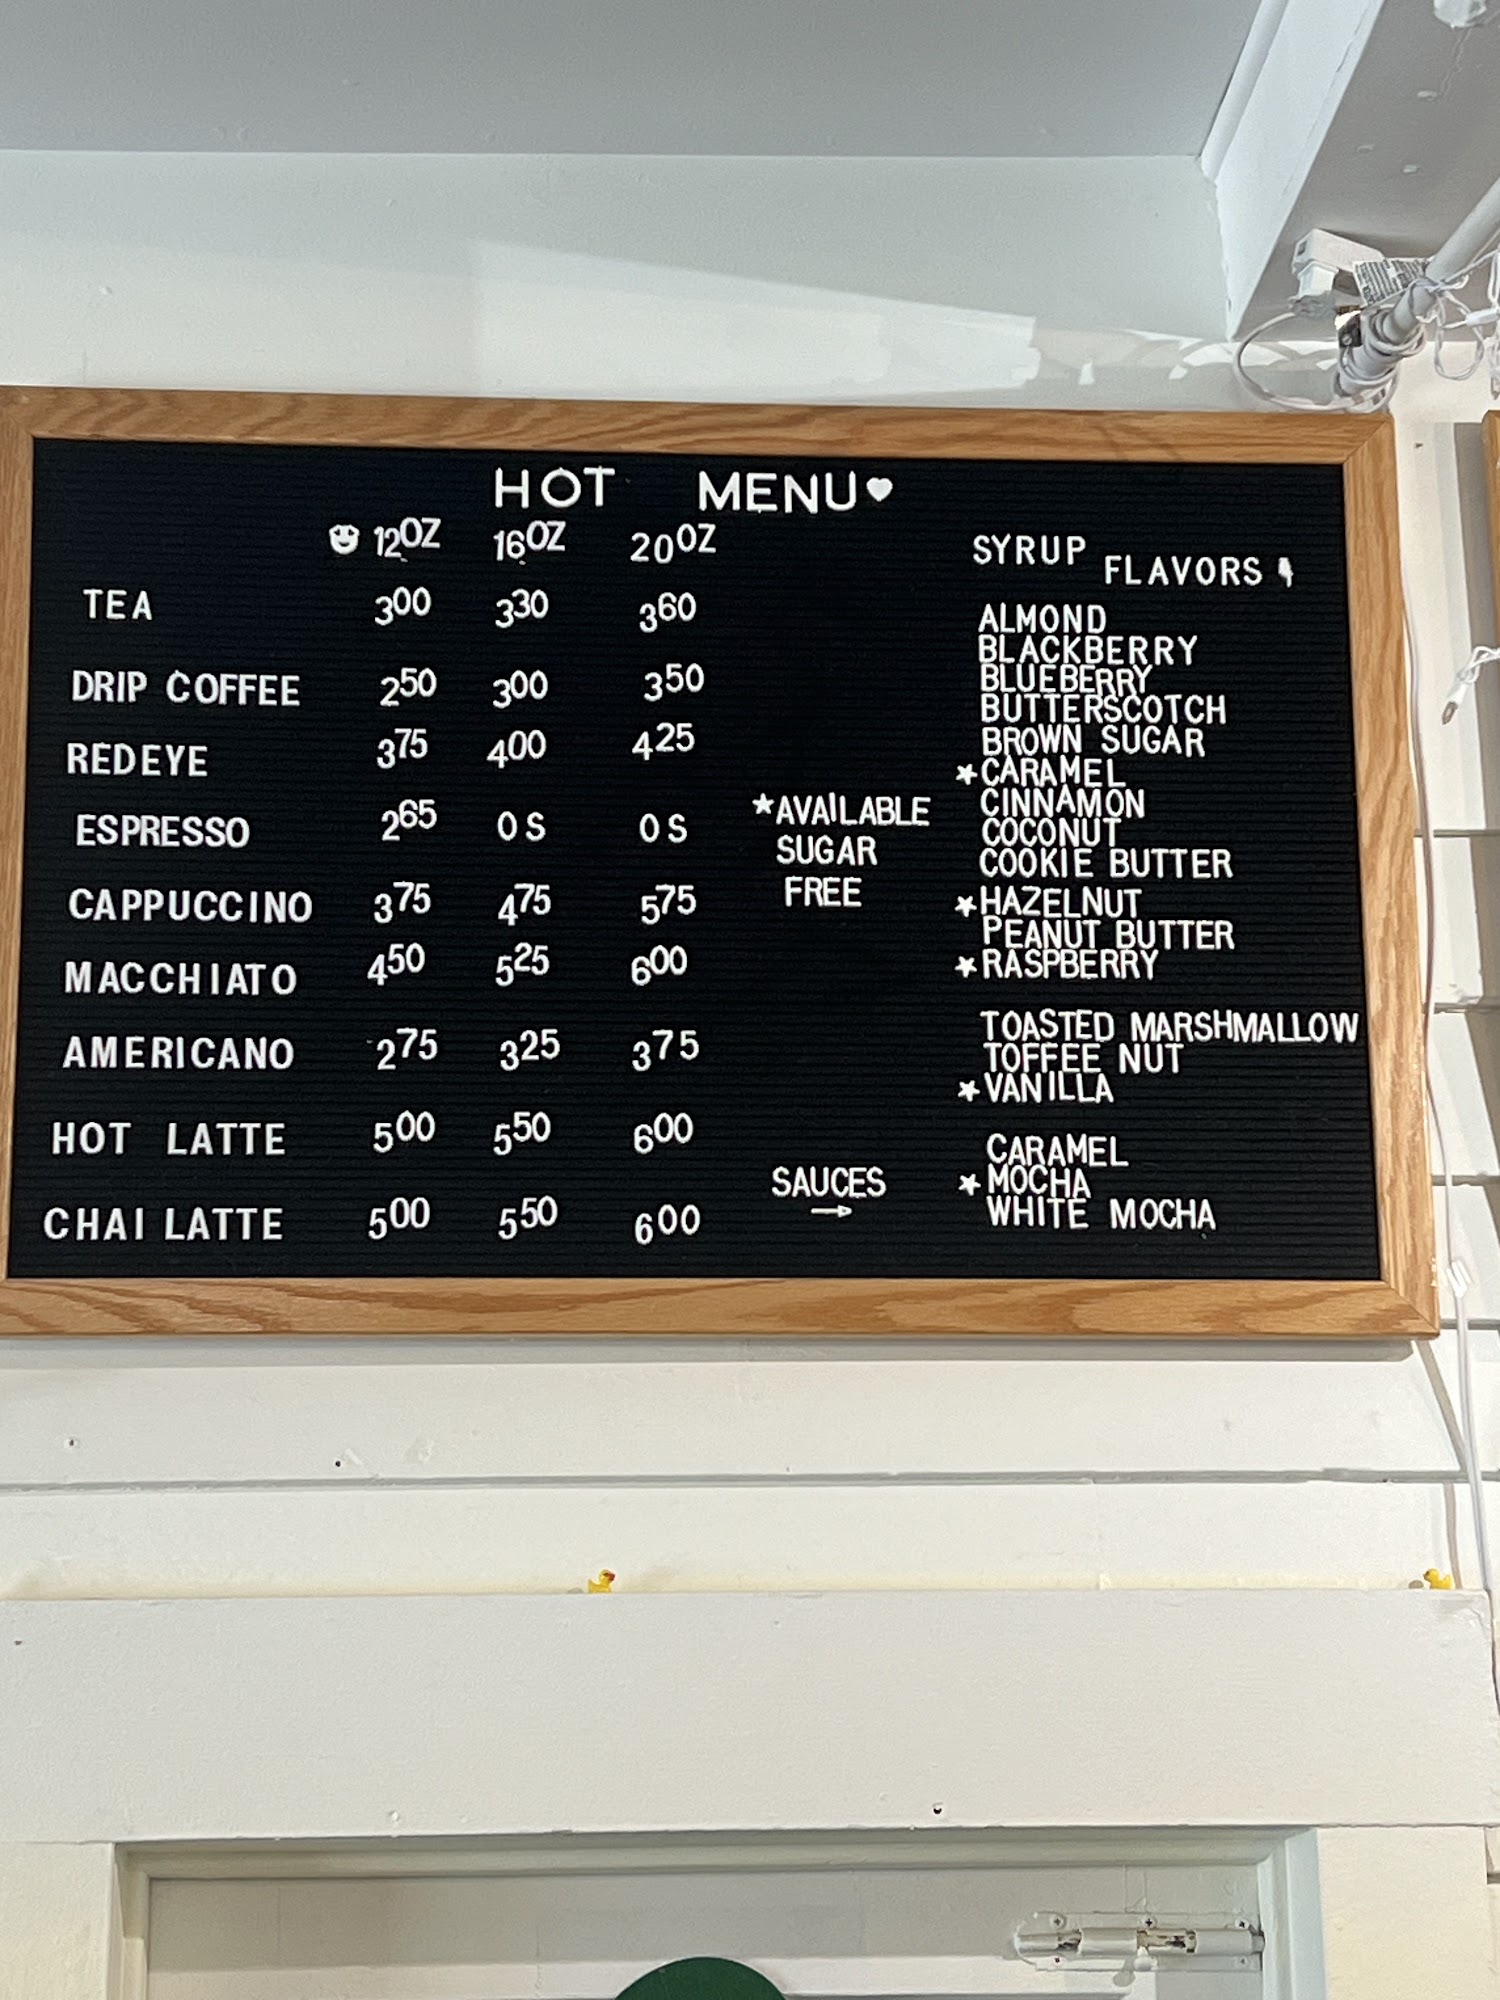 HOT MENU
12OZ 16OZ 20OZ
TEA 300 330 360
DRIP COFFEE 250 300 350
REDEYE 375 400 425
ESPRESSO 265 OS OS
CAPPUCCINO 375 475 575
MACCHIATO 450 525 600
AMERICANO 275 325 375
HOT LATTE 500 550 600
CHAI LATTE 500 550 600
*AVAILABLE
SUGAR
FREE
SAUCES
→
SYRUP FLAVORS
ALMOND
BLACKBERRY
BLUEBERRY
BUTTERSCOTCH
BROWN SUGAR
*CARAMEL
CINNAMON
COCONUT
COOKIE BUTTER
*HAZELNUT
PEANUT BUTTER
*RASPBERRY
TOASTED MARSHMALLOW
TOFFEE NUT
*VANILLA
CARAMEL
*MOCHA
WHITE MOCHA